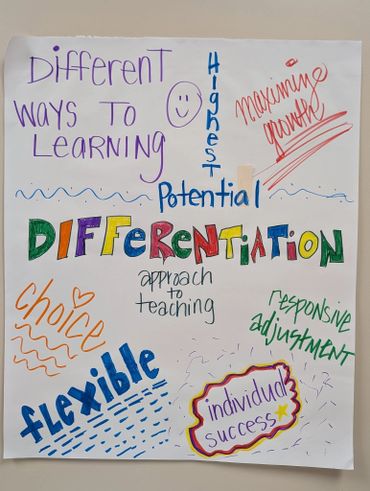 Different
WAYS TO
LEARNING
Highest
Potential
maximize
growth
DIFFERENTIATION
approach
to
teaching
choice
responsive
adjustment
flexible
individual
success